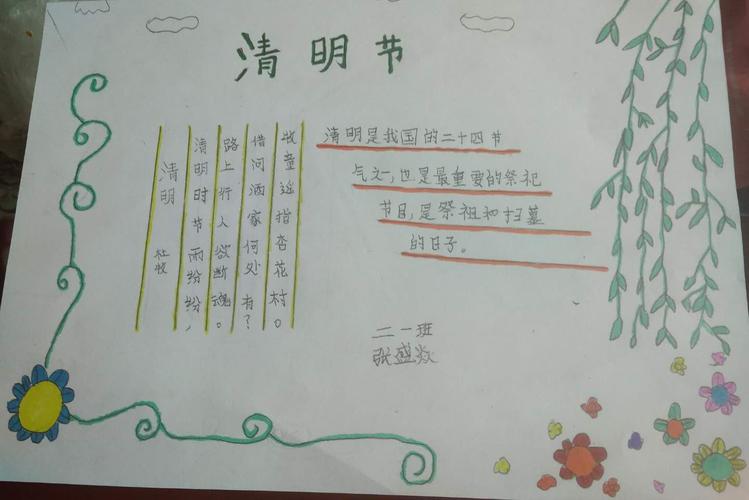 清明节
清明
杜牧
清明时节雨纷纷,
路上行人欲断魂。
借问酒家何处有?
牧童遥指杏花村。
清明是我国的二十四节
气之一,也是最重要的祭祀
节日,是祭祖和扫墓
的日子。
二一班
张盛